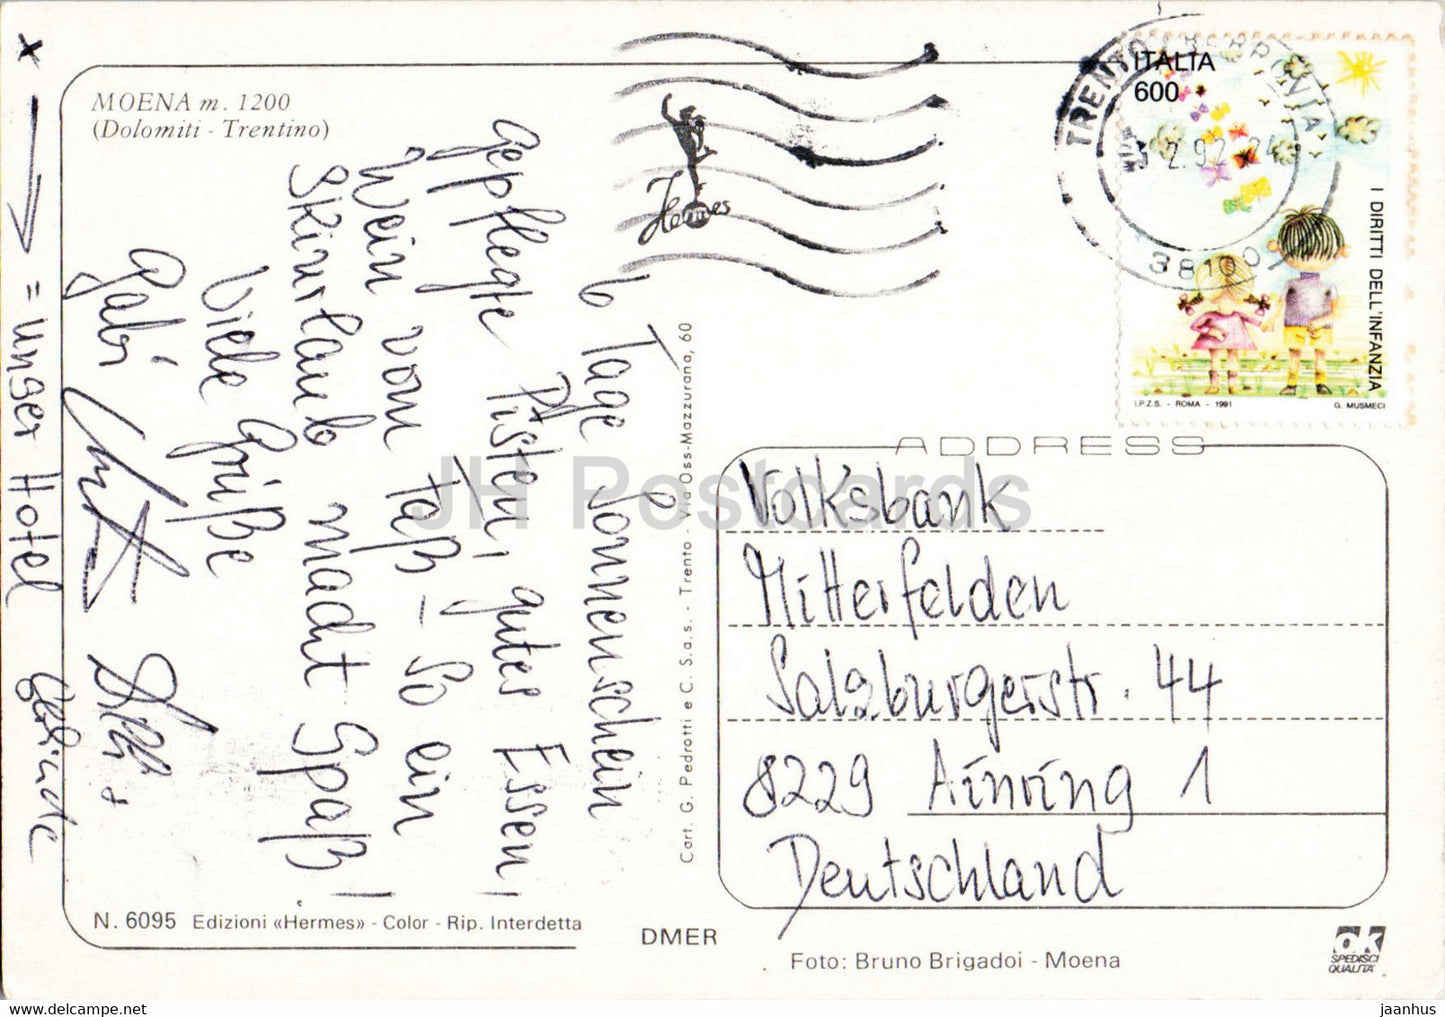 MOENA m. 1200
(Dolomiti - Trentino)
6 Tage Sonnenschein
gepflegte Pisten, gutes Essen,
Wein vom Faß - so ein
Skiurlaub macht Spaß!
Viele Grüße
Gabi
x → = unser Hotel
Hermes
TRENTO FERROVIA
3.2.92 24
38100
ITALIA
600
I DIRITTI DELL'INFANZIA
I.P.Z.S. - ROMA - 1991
G. MUSMECI
Cart. G. Pedrotti e C. S.a.s. - Trento - Via Oss-Mazzurana, 60
ADDRESS
Volksbank
Mitterfelden
Salzburgerstr. 44
8229 Ainring 1
Deutschland
N. 6095 Edizioni «Hermes» - Color - Rip. Interdetta
DMER
Foto: Bruno Brigadoi - Moena
ok
SPEDISCI
QUALITÀ
JH Postcards
https://www.hippostcard.com/store/jaanhus